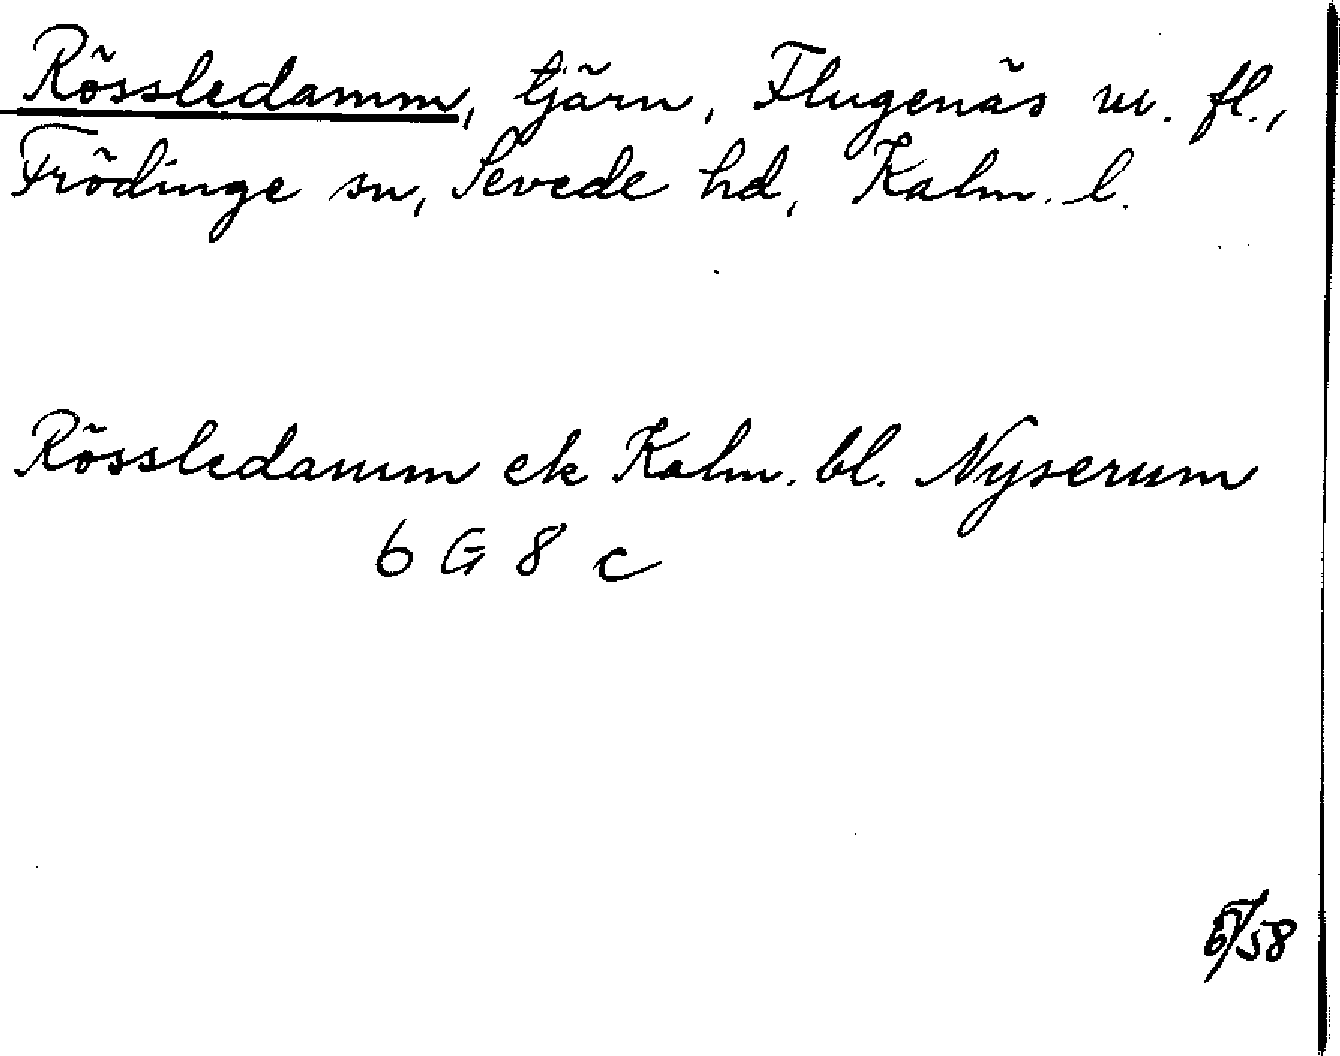 Rössledamm, tjärn, Flugenäs m. fl.,
Frödinge sn, Sevede hd, Kalm. l.
Rössledamm ek Kalm. bl. Nyserum
6 G 8 c